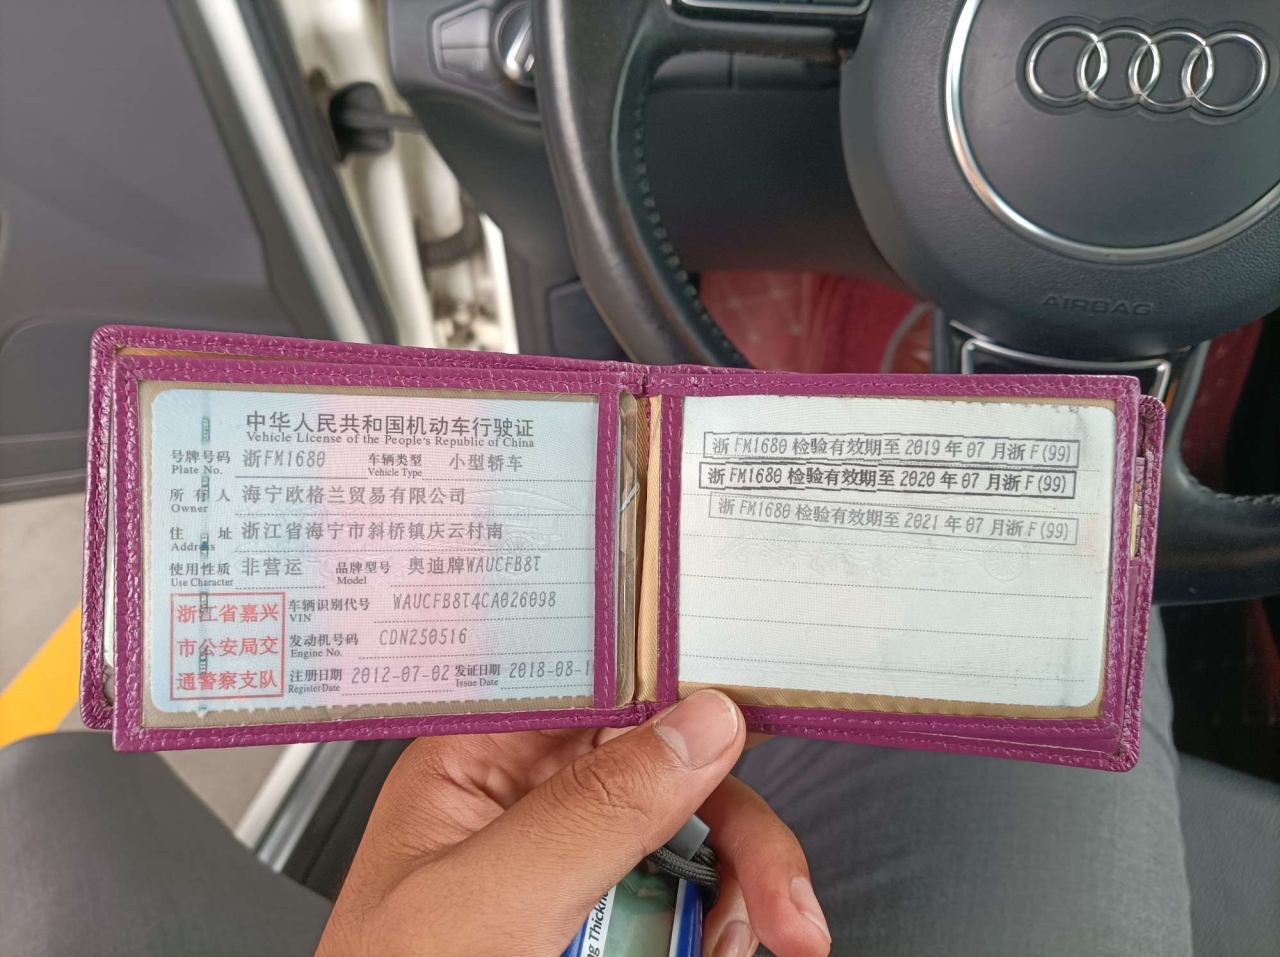 AIRBAG
中华人民共和国机动车行驶证
Vehicle License of the People's Republic of China
号牌号码 浙FM1680 车辆类型 小型轿车
Plate No. Vehicle Type
所有人 海宁欧格兰贸易有限公司
Owner
住址 浙江省海宁市斜桥镇庆云村南
Address
使用性质 非营运 品牌型号 奥迪牌WAUCFB8T
Use Character Model
浙江省嘉兴
市公安局交
通警察支队
车辆识别代号 WAUCFB8T4CA026098
VIN
发动机号码 CDN250516
Engine No.
注册日期 2012-07-02 发证日期 2018-08-1
Register Date Issue Date
浙FM1680检验有效期至2019年07月浙F(99)
浙FM1680检验有效期至2020年07月浙F(99)
浙FM1680检验有效期至2021年07月浙F(99)